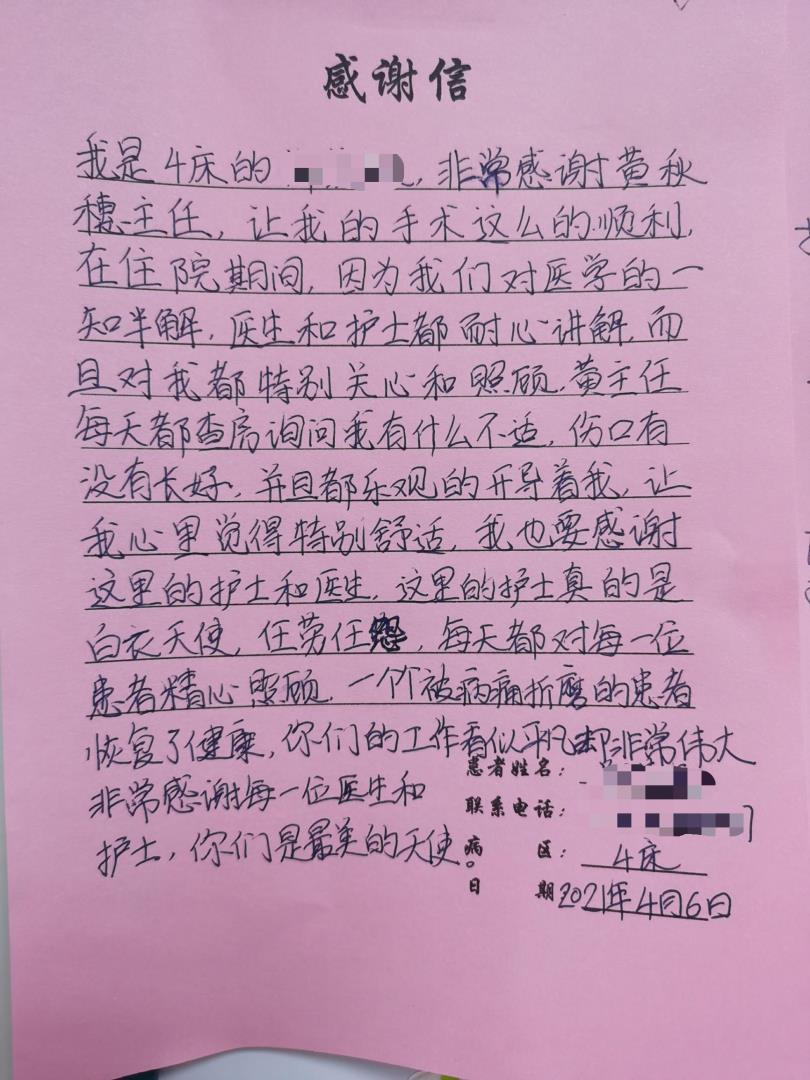 感谢信
我是4床的 , 非常感谢黄秋
穗主任, 让我的手术这么的顺利,
在住院期间, 因为我们对医学的一
知半解, 医生和护士都耐心讲解, 而
且对我都特别关心和照顾, 黄主任
每天都查房询问我有什么不适, 伤口有
没有长好, 并且都乐观的开导着我, 让
我心里觉得特别舒适, 我也要感谢
这里的护士和医生, 这里的护士真的是
白衣天使, 任劳任怨, 每天都对每一位
患者精心照顾, 一个个被病痛折磨的患者
恢复了健康, 你们的工作看似平凡却非常伟大
患者姓名:
非常感谢每一位医生和
联系电话:
护士, 你们是最美的天使。
病 区: 4床
日 期 2021年4月6日